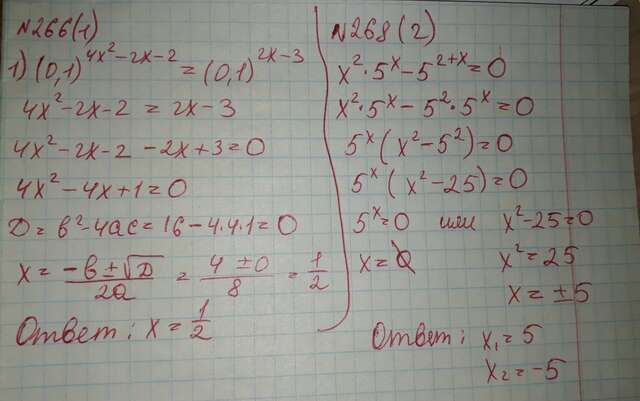 №266(1)
1) (0,1)^(4x²-2x-2) = (0,1)^(2x-3)
4x²-2x-2 = 2x-3
4x²-2x-2-2x+3=0
4x²-4x+1=0
D = b²-4ac = 16-4·4·1=0
x = (-b±√D)/(2a) = (4±0)/8 = 1/2
Ответ: x = 1/2
№268(2)
x²·5^x-5^(2+x)=0
x²·5^x-5²·5^x=0
5^x(x²-5²)=0
5^x(x²-25)=0
5^x=0 или x²-25=0
x=∅ x²=25
x=±5
Ответ: x₁=5
x₂=-5